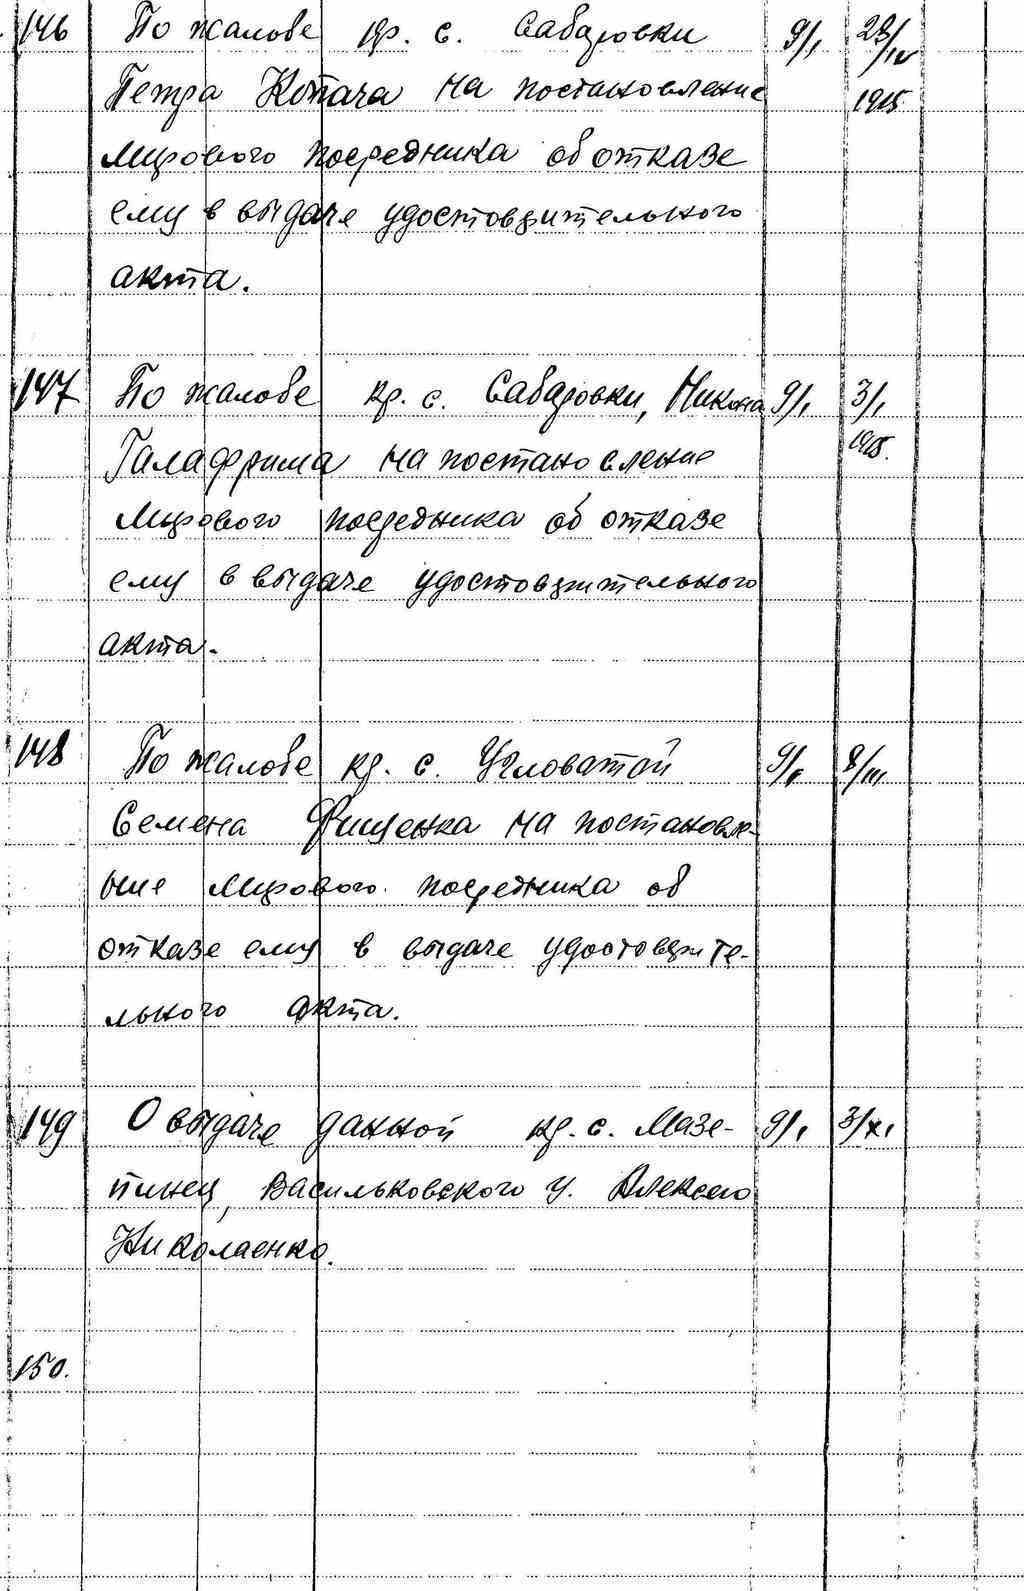 146 По жалобе кр. с. Сабаровки 9/I 23/IV
Петра Копача на постановление 1915
Мирового посредника об отказе
ему в выдаче удостоверительного
акта.
147 По жалобе кр. с. Сабаровки, Никона 9/I 3/I
Галафрима на постановление 1915.
Мирового посредника об отказе
ему в выдаче удостоверительного
акта.
148 По жалобе кр. с. Угловатой 9/I 8/III
Семена Фищенка на постановле-
ние Мирового посредника об
отказе ему в выдаче удостоверите-
льного акта.
149 О выдаче данной кр. с. Мазе- 9/I 3/XI
пинец, Васильковского у. Алексею
Николаенко.
150.